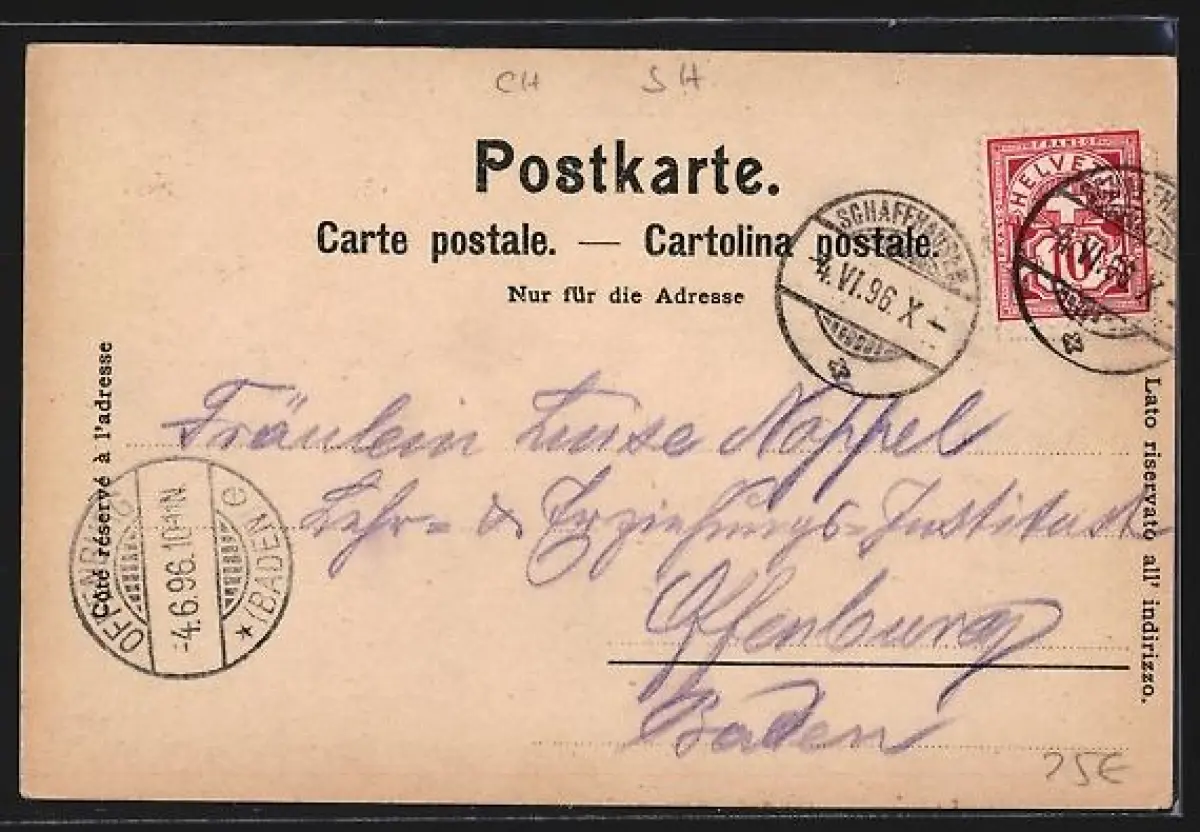 CH SH
Postkarte.
Carte postale. — Cartolina postale.
Nur für die Adresse
FRANCO
HELVETIA
10
SCHAFFHAUSEN
4.VI.96.X–
4.VI.96.X–
Côté réservé à l'adresse
Lato riservato all' indirizzo.
Fräulein Luise Noppel
Lehr- & Erziehungs-Institut
Offenburg
Baden
OFFENBURG
-4.6.96.10-11N
(BADEN) C
75€